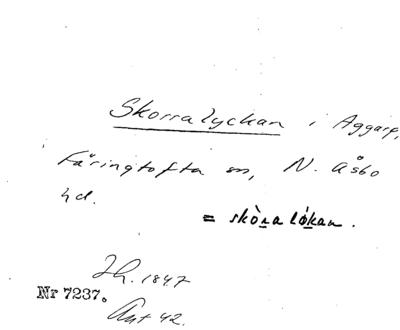 Skorralyckan i Aggarp,
Färingtofta sn, N. Åsbo
hd.
= skòra lókan.
Jh. 1847
Nr 7237.
Ant 42.